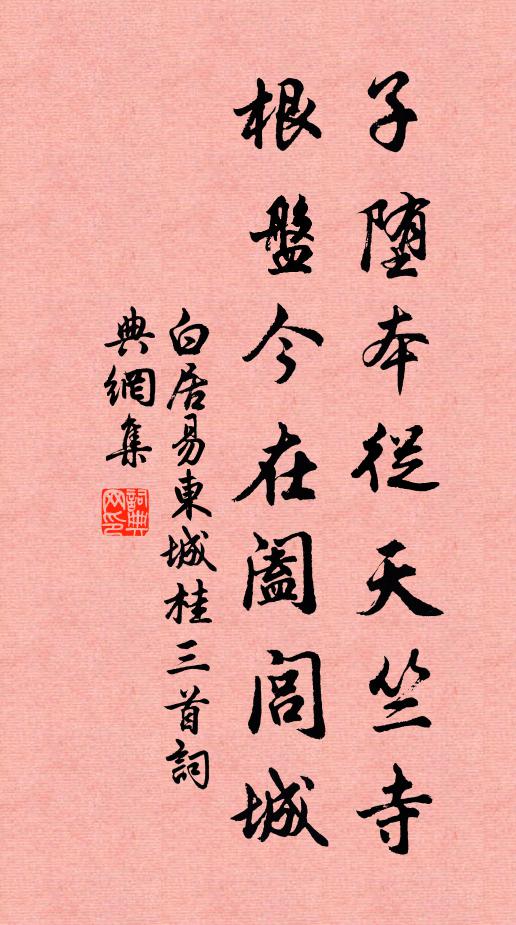 子堕本從天竺寺
根盤今在闔閭城
白居易東城桂三首詞
典網集
詞典網印